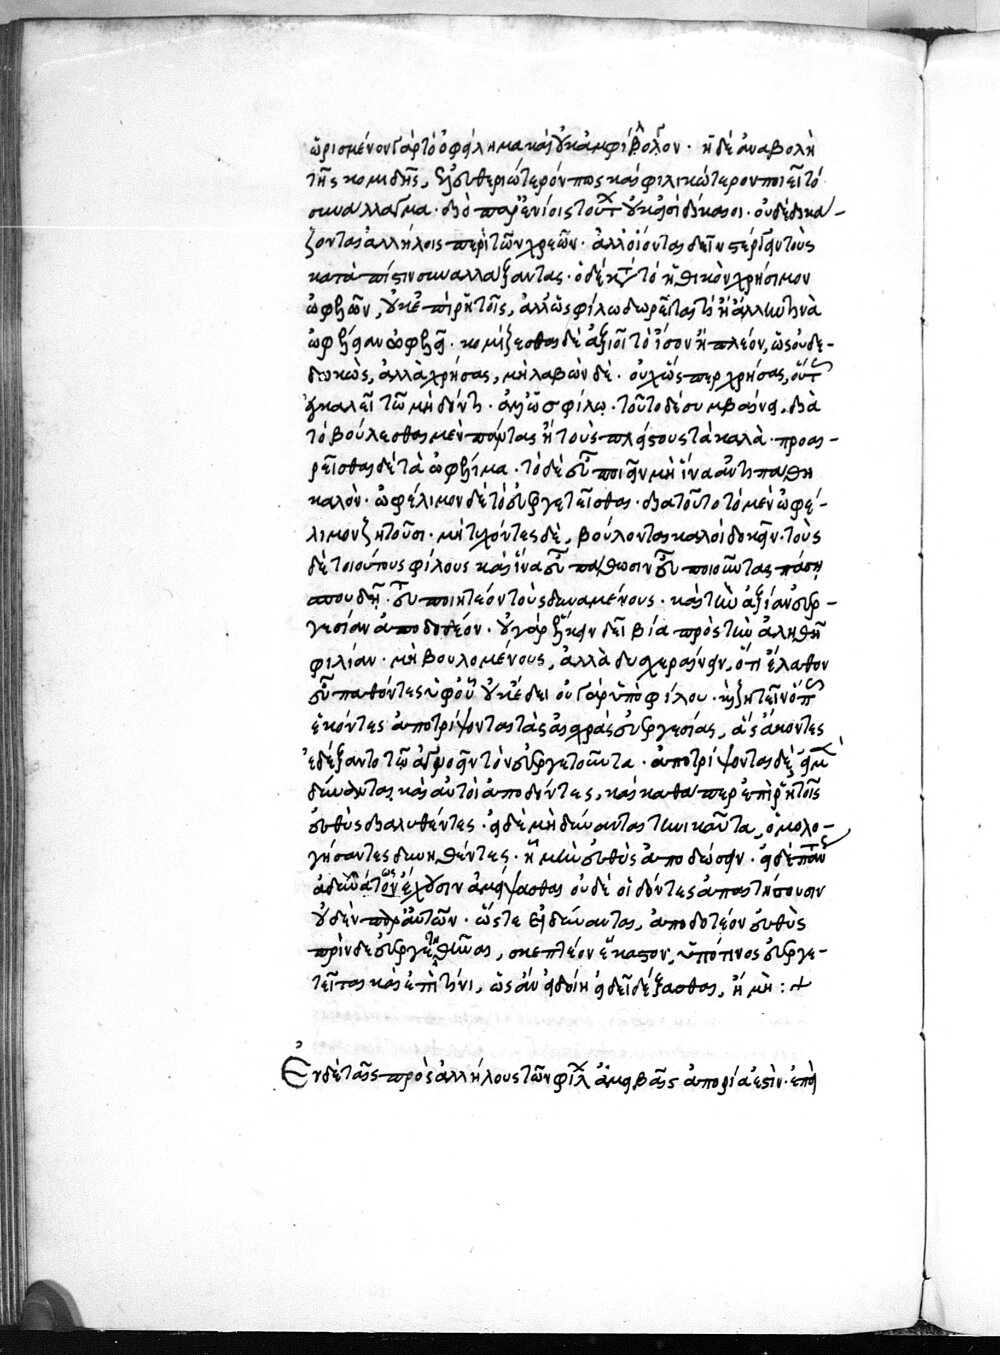 ὡρισμένον γὰρ τὸ ὀφείλημα καὶ οὐκ ἀμφίβολον· ἡ δὲ ἀναβολὴ
τῆς κομιδῆς, ἐλευθεριώτερόν πως καὶ φιλικώτερον ποιεῖ τὸ
συνάλλαγμα· διὸ παρ' ἐνίοις τούτων οὐκ εἰσὶ δίκαι· οὐδὲ δικά-
ζονται ἀλλήλοις περὶ τῶν χρεῶν· ἀλλ' οἴονται δεῖν στέργειν τοὺς
κατὰ πίστιν συναλλάξαντας· ὁ δὲ κατὰ τὸ ἠθικὸν χρήσιμον
ὠφελῶν, οὐκ ἐπὶ ῥητοῖς, ἀλλ' ὡς φίλῳ δωρεῖται τι ἢ ἄλλως τινὰ
ὠφέλειαν ὠφελεῖ· κομίζεσθαι δὲ ἀξιοῖ τὸ ἴσον ἢ πλέον, ὡς οὐ δε-
δωκὼς, ἀλλὰ χρήσας, μὴ λαβὼν δὲ· οὐχ ὥσπερ χρήσας, οὕτως
ἐγκαλεῖ τῷ μὴ δόντι· ἀλλ' ὡς φίλῳ· τοῦτο δὲ συμβαίνει διὰ
τὸ βούλεσθαι μὲν πάντας ἢ τοὺς πλείστους τὰ καλὰ· προαι-
ρεῖσθαι δὲ τὰ ὠφέλιμα· τὸ δὲ εὖ ποιεῖν μὴ ἵνα ἀντιπάθῃ
καλὸν· ὠφέλιμον δὲ τὸ εὐεργετεῖσθαι· διὰ τοῦτο τὸ μὲν ὠφέ-
λιμον ζητοῦσι· μὴ τυχόντες δὲ, βούλονται καλοὶ δοκεῖν· τοὺς
δὲ τοιούτους φίλους καὶ ἵνα εὖ πάθωσιν εὖ ποιοῦντας πάσῃ
σπουδῇ· εὖ ποιητέον τοὺς δυναμένους· καὶ τὴν ἀξίαν εὐερ-
γεσίαν ἀποδοτέον· οὐ γὰρ ἕλκειν δεῖ βίᾳ πρὸς τὴν ἀληθῆ
φιλίαν· μὴ βουλομένους, ἀλλὰ δυσχεραίνειν, ὅτι ἔλαθον
εὖ παθόντες ὑφ' οὗ οὐκ ἔδει οὐ γὰρ ὑπὸ φίλου· καὶ ζητεῖν ὅπως
ἑκόντες ἀποτρίψονται τὰς αἰσχρὰς εὐεργεσίας, ἃς ἄκοντες
ἐδέξαντο τῷ ἀγνοεῖν τὸν εὐεργετοῦντα· ἀποτρίψονται δὲ, εἰ μὲν
δύνανται, καὶ αὐτοὶ ἀποδόντες, καὶ καθάπερ ἐπὶ ῥητοῖς
εὐθὺς διαλυθέντες· εἰ δὲ μὴ δύνανται τηνικαῦτα, ὁμολο-
γήσαντες δυνηθέντες· ἦ μὴν εὐθὺς ἀποδώσειν· εἰ δὲ πάντως
ἀδυνάτως ἔχουσιν ἀμείψασθαι οὐδὲ οἱ δόντες ἀπαιτήσουσιν
οὐδὲν παρ' αὐτῶν· ὥστε εἰ δύνανται, ἀποδοτέον εὐθὺς
πρὶν δὲ εὐεργετηθῆναι, σκεπτέον ἕκαστον, ὑπὸ τίνος εὐεργε-
τεῖται καὶ ἐπὶ τίνι, ὡς ἂν εἰδοίη εἰ δεῖ δέξασθαι, ἢ μὴ :~
Ἐν δὲ ταῖς πρὸς ἀλλήλους τῶν φίλων ἀμοιβαῖς ἀπορία ἐστὶν· ἐπεὶ